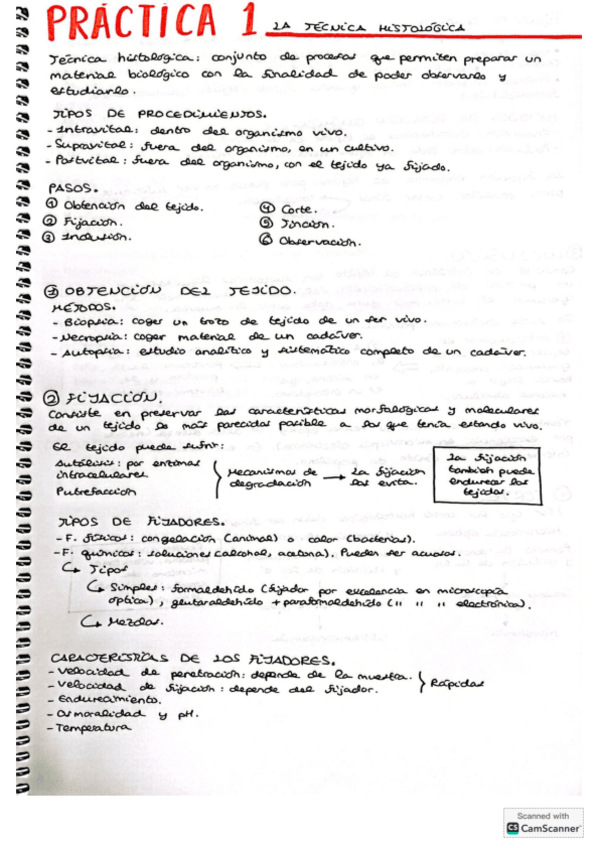 PRÁCTICA 1 LA TÉCNICA HISTOLÓGICA
Técnica histológica: conjunto de procesos que permiten preparar un
material biológico con la finalidad de poder observarlo y
estudiarlo.
TIPOS DE PROCEDIMIENTOS.
- Intravital: dentro del organismo vivo.
- Supravital: fuera del organismo, en un cultivo.
- Postvital: fuera del organismo, con el tejido ya fijado.
PASOS.
① Obtención del tejido.
② Fijación.
③ Inclusión.
④ Corte.
⑤ Tinción.
⑥ Observación.
① OBTENCIÓN DEL TEJIDO.
MÉTODOS.
- Biopsia: coger un trozo de tejido de un ser vivo.
- Necropsia: coger material de un cadáver.
- Autopsia: estudio analítico y sistemático completo de un cadáver.
② FIJACIÓN.
Consiste en preservar las características morfológicas y moleculares
de un tejido lo más parecidas posible a las que tenía estando vivo.
El tejido puede sufrir:
Autólisis: por enzimas
intracelulares
Putrefacción
Mecanismos de
degradación
→ La fijación
las evita.
La fijación
también puede
endurecer los
tejidos.
TIPOS DE FIJADORES.
- F. físicos: congelación (animal) o calor (bacterias).
- F. químicos: soluciones (alcohol, acetona). Pueden ser acuosos.
↳ Tipos
↳ Simples: formaldehído (fijador por excelencia en microscopía
óptica), glutaraldehído + paraformaldehído (" " " electrónica).
↳ Mezclas.
CARACTERÍSTICAS DE LOS FIJADORES.
- Velocidad de penetración: depende de la muestra.
- Velocidad de fijación: depende del fijador.
} Rápidas
- Endurecimiento.
- Osmolaridad y pH.
- Temperatura
Scanned with
CS CamScanner